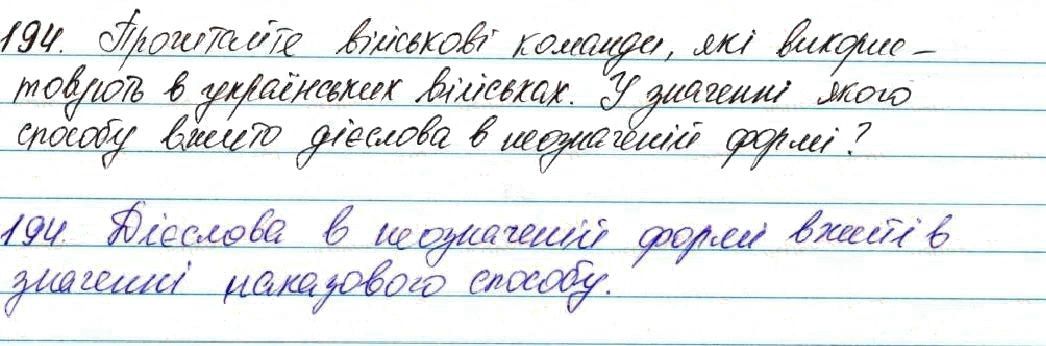 194. Прочитайте військові команди, які викорис-
товують в українських військах. У значенні якого
способу вжито дієслова в неозначеній формі?
194. Дієслова в неозначеній формі вжиті в
значенні наказового способу.